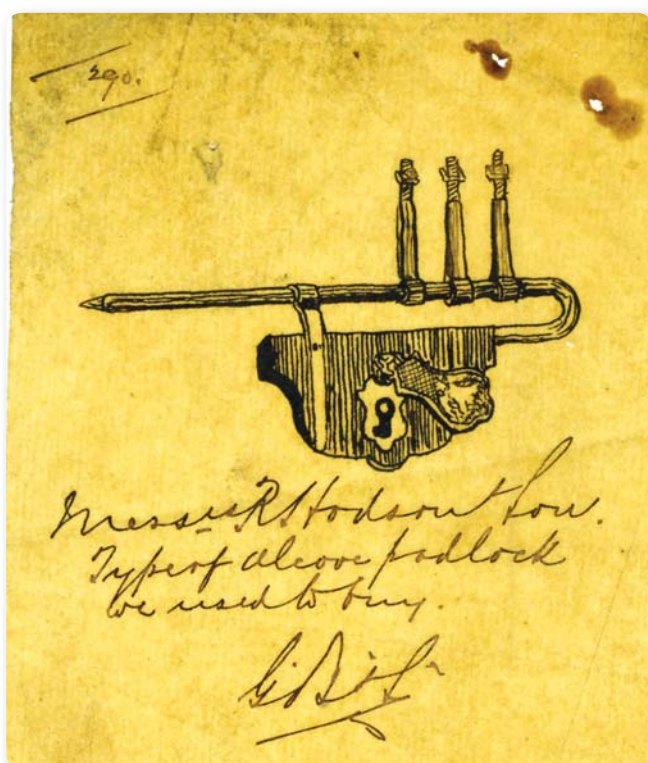 290.
Messrs R Hodson & Son.
Type of above padlock
we used to buy.